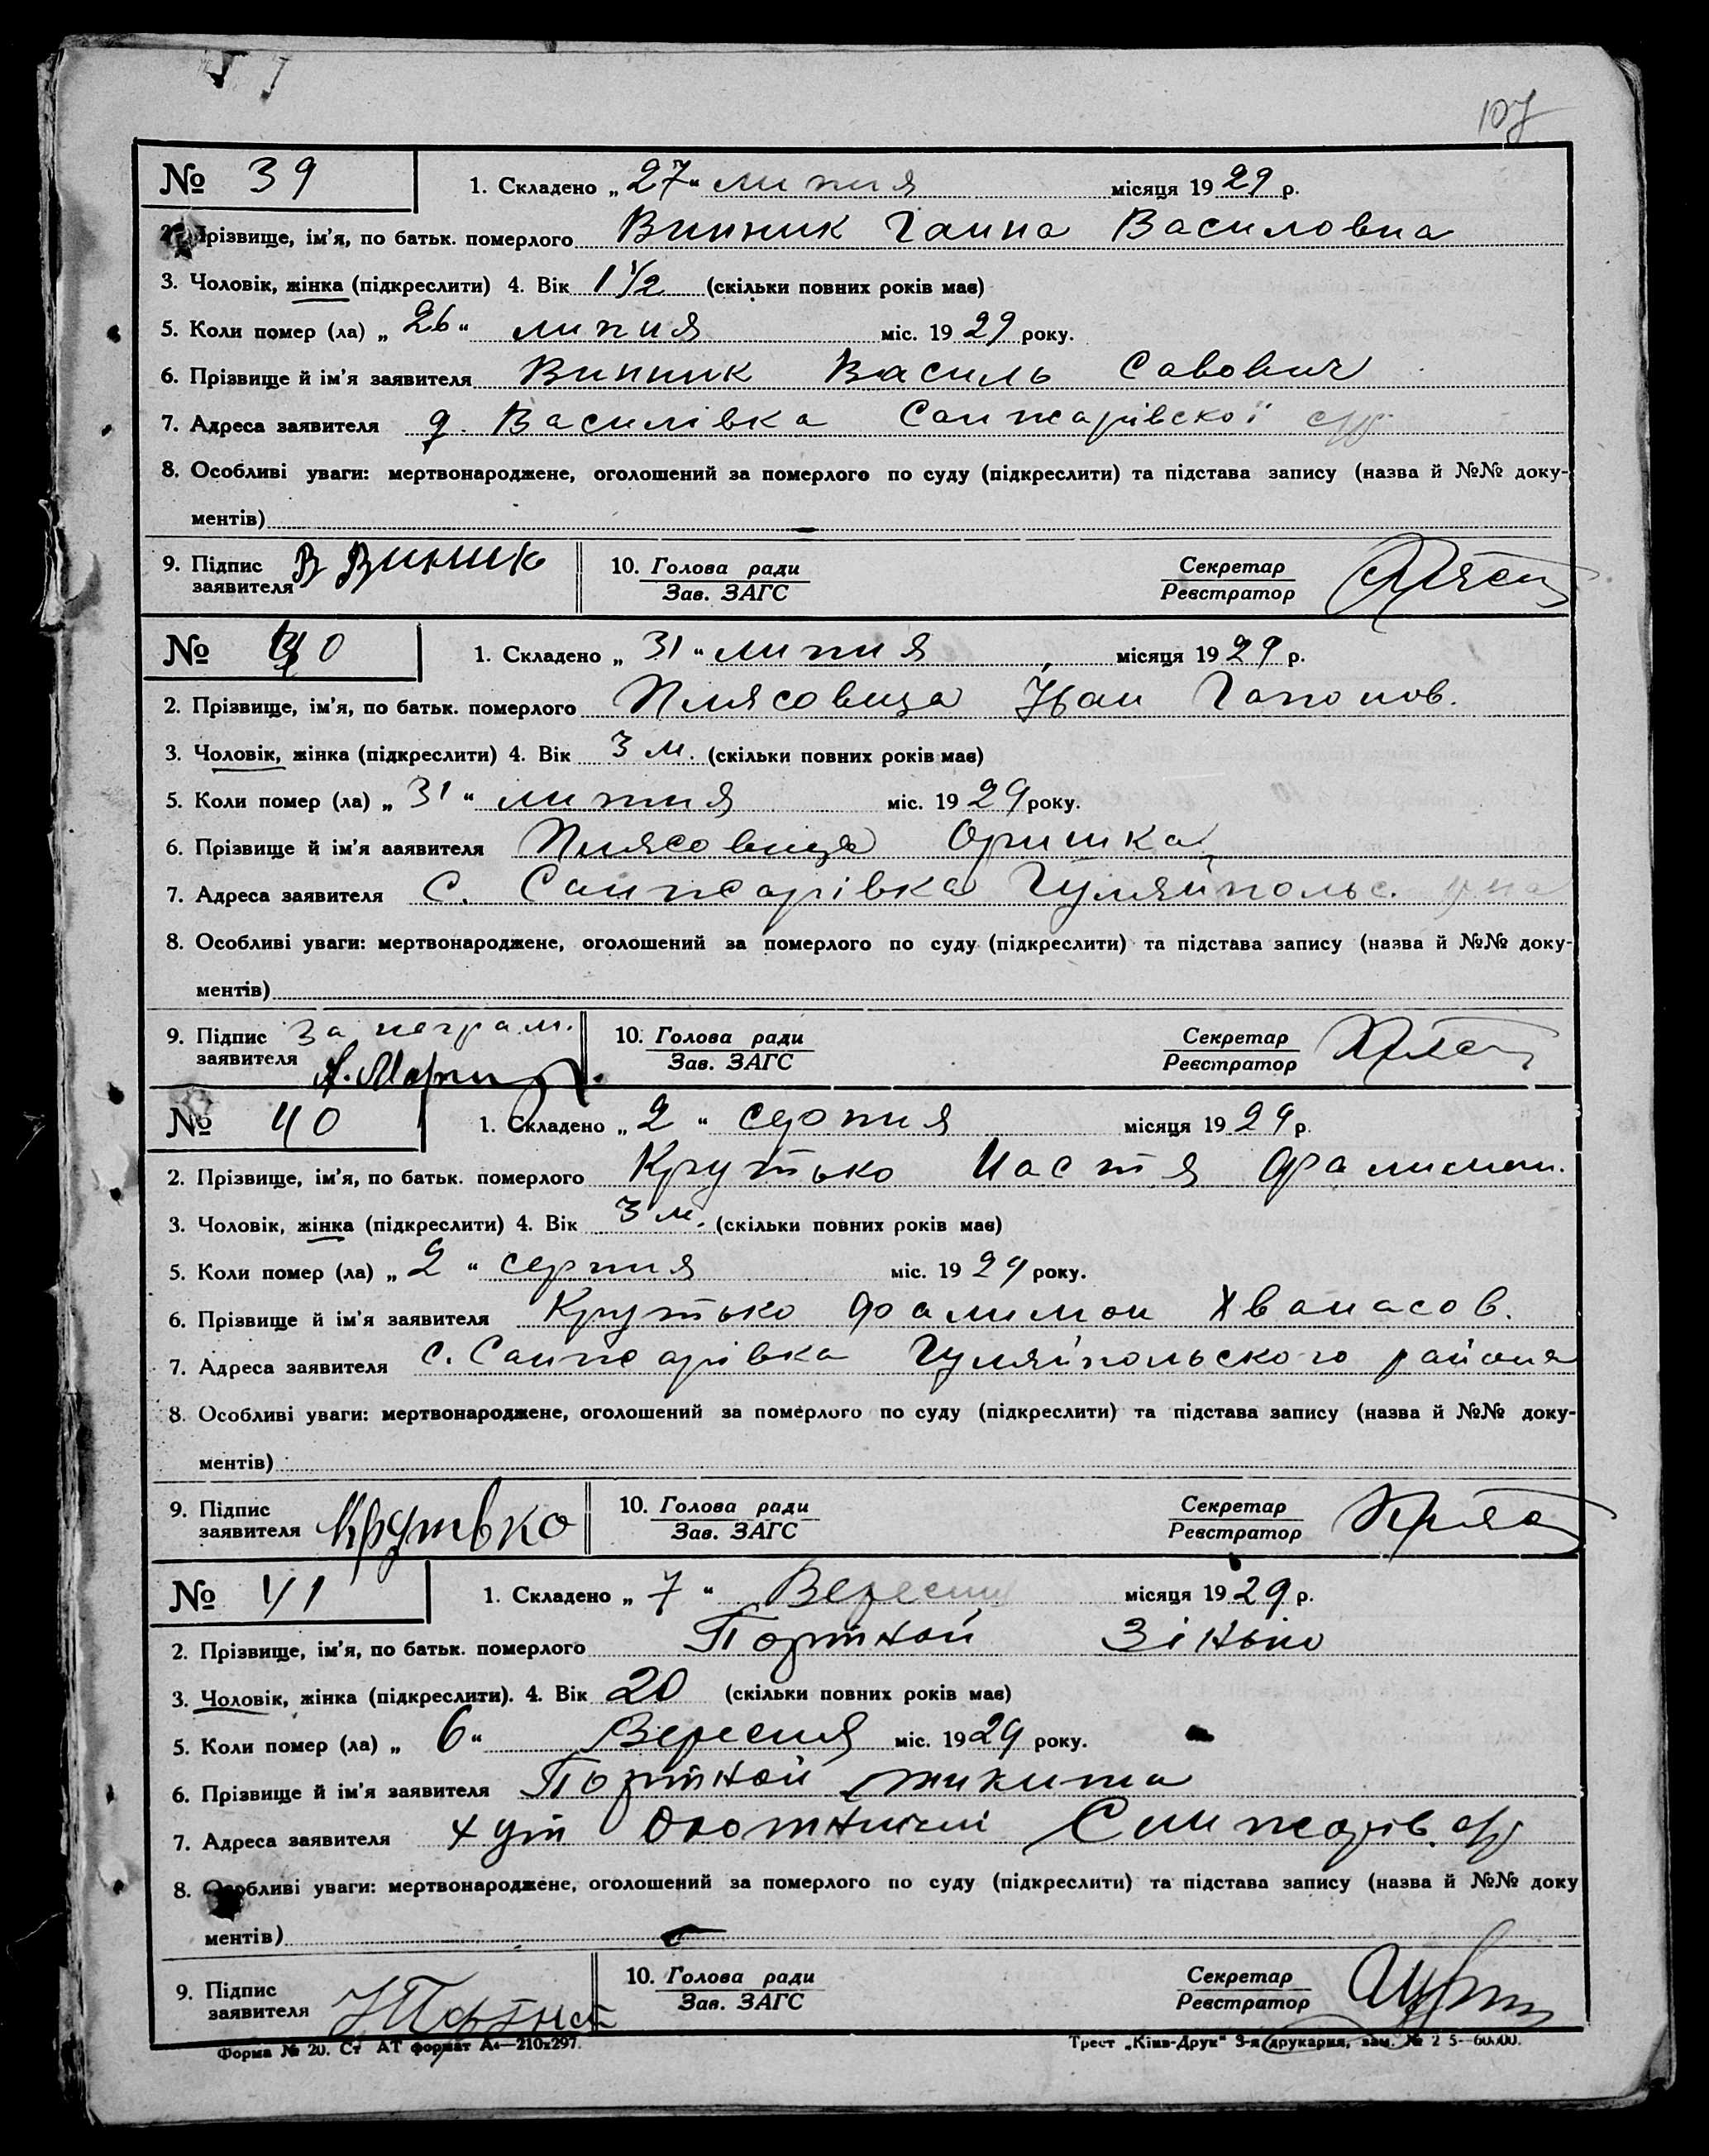 107
№ 39 1. Складено „27“ липня місяця 1929 р.
2. Прізвище, ім'я, по батьк. померлого Винник Ганна Василовна
3. Чоловік, жінка (підкреслити) 4. Вік 1 1/2 (скільки повних років має)
5. Коли помер (ла) „26“ липня міс. 1929 року.
6. Прізвище й ім'я заявителя Винник Василь Савович
7. Адреса заявителя д. Василівка Санжарівскої с/р
8. Особливі уваги: мертвонароджене, оголошений за померлого по суду (підкреслити) та підстава запису (назва й №№ доку-
ментів)
9. Підпис заявителя В Виник 10. Голова ради Зав. ЗАГС Секретар Реєстратор
№ 40 1. Складено „31“ липня місяця 1929 р.
2. Прізвище, ім'я, по батьк. померлого Плясовица Іван Гапонов.
3. Чоловік, жінка (підкреслити) 4. Вік 3 м. (скільки повних років має)
5. Коли помер (ла) „31“ липня міс. 1929 року.
6. Прізвище й ім'я заявителя Плясовица Оришка
7. Адреса заявителя С. Санжарівка Гуляйпольс. р-на
8. Особливі уваги: мертвонароджене, оголошений за померлого по суду (підкреслити) та підстава запису (назва й №№ доку-
ментів)
9. Підпис заявителя За неграм. 10. Голова ради Зав. ЗАГС Секретар Реєстратор
№ 40 1. Складено „2“ серпня місяця 1929 р.
2. Прізвище, ім'я, по батьк. померлого Крутько Настя Фалимон.
3. Чоловік, жінка (підкреслити) 4. Вік 3 м. (скільки повних років має)
5. Коли помер (ла) „2“ серпня міс. 1929 року.
6. Прізвище й ім'я заявителя Крутько Фалимон Хванасов.
7. Адреса заявителя с. Санжарівка Гуляйпольского района
8. Особливі уваги: мертвонароджене, оголошений за померлого по суду (підкреслити) та підстава запису (назва й №№ доку-
ментів)
9. Підпис заявителя Крутько 10. Голова ради Зав. ЗАГС Секретар Реєстратор
№ 41 1. Складено „7“ Вересня місяця 1929 р.
2. Прізвище, ім'я, по батьк. померлого Портной Зінько
3. Чоловік, жінка (підкреслити). 4. Вік 20 (скільки повних років має)
5. Коли помер (ла) „6“ Вересня міс. 1929 року.
6. Прізвище й ім'я заявителя Портной Микита
7. Адреса заявителя хут Санжарів. с/р
8. Особливі уваги: мертвонароджене, оголошений за померлого по суду (підкреслити) та підстава запису (назва й №№ доку
ментів)
9. Підпис заявителя 10. Голова ради Зав. ЗАГС Секретар Реєстратор
Форма № 20. Ст АТ формат А4—210х297. Трест „Київ-Друк“ 3-я друкарня, зам. №